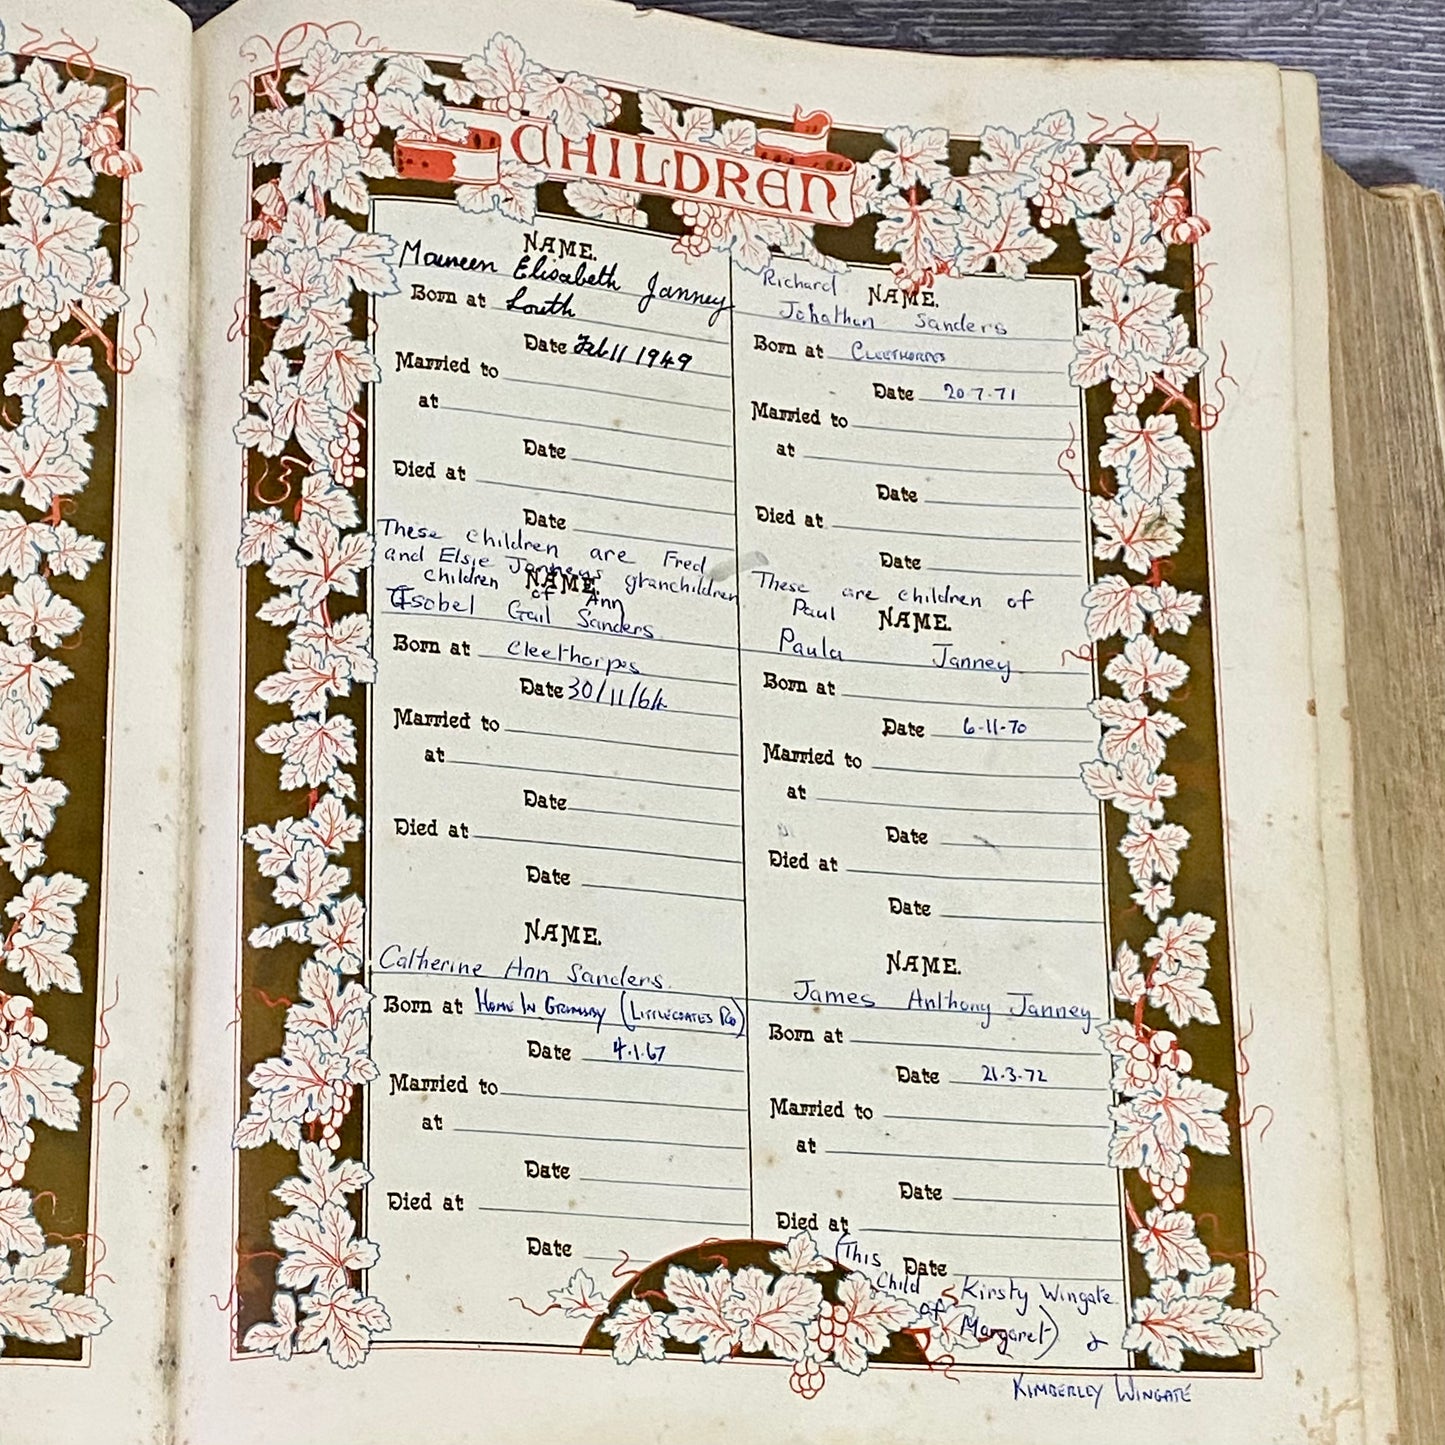 CHILDREN
NAME.
Maureen Elisabeth Janney
Born at Louth
Date Feb 11 1949
Married to
at
Date
Died at
Date
These children are Fred
and Elsie Janneys grandchildren
children of Ann
NAME.
Isobel Gail Sanders
Born at Cleethorpes
Date 30/11/64
Married to
at
Date
Died at
Date
NAME.
Catherine Ann Sanders.
Born at HOME IN GRIMSBY (LITTLECOATES RD)
Date 4.1.67
Married to
at
Date
Died at
Date
Richard
NAME.
Johathan Sanders
Born at CLEETHORPES
Date 20.7.71
Married to
at
Date
Died at
Date
These are children of
Paul
NAME.
Paula Janney
Born at
Date 6-11-70
Married to
at
Date
Died at
Date
NAME.
James Anthony Janney
Born at
Date 21.3.72
Married to
at
Date
Died at
Date
(This
Child s
of
Margaret)
Kirsty Wingate
&
KIMBERLEY WINGATE